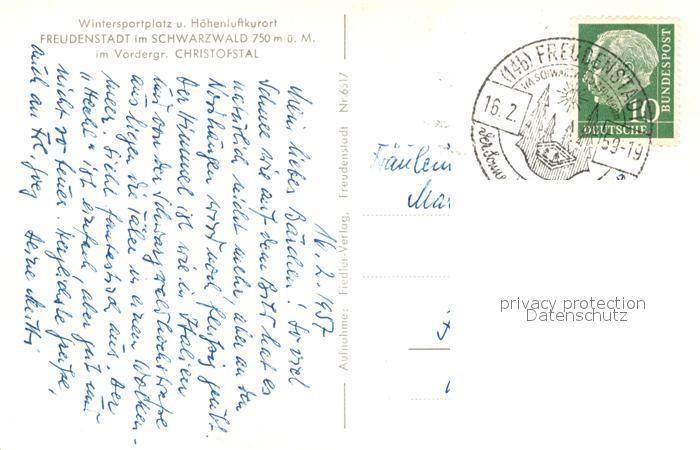 Wintersportplatz u. Höhenluftkurort
FREUDENSTADT im SCHWARZWALD 750 m ü. M.
im Vordergr. CHRISTOFSTAL
16.2.1957
Mein liebes Bärchen! So viel
Schnee wie auf dem Bild hat es
natürlich nicht mehr, aber an den
Nordhängen wird noch fleißig geübt.
Der Himmel ist wie in Italien
und von der Schwarzwaldhochstraße
aus liegen die Täler in einem Wolken-
meer. Sieht fantastisch aus. Der
"Hecht" ist einfach aber gut und
nicht so teuer. Herzlichste Grüße,
auch an Frl. Deine Mutti
Aufnahme: Fiedler-Verlag, Freudenstadt Nr. 6517
Fräulein
Mar
(14b) FREUDENSTADT
IM SCHWARZWALD
16.2.
59-19
10
DEUTSCHE
BUNDESPOST
privacy protection
Datenschutz